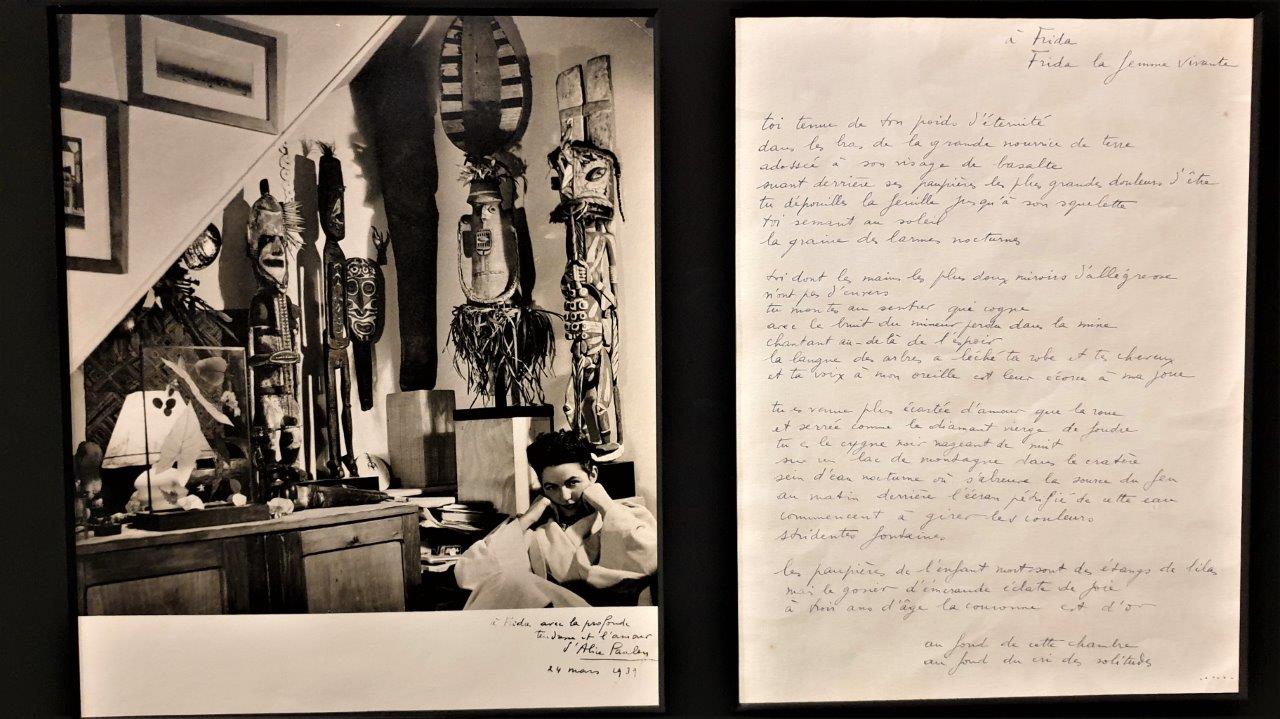 à Frida avec la profonde
tendresse et l'amour
d'Alice Paalen
24 mars 1939
à Frida
Frida la femme vivante
toi tenue de ton poids d'éternité
dans les bras de la grande nourrice de terre
adossée à son visage de basalte
suant derrière ses paupières les plus grandes douleurs d'être
tu dépouilles la feuille jusqu'à son squelette
toi semant au soleil
la graine des larmes nocturnes
toi dont les mains les plus doux miroirs d'allégresse
n'ont pas d'envers
tu montes au sentier qui cogne
avec le bruit du mineur perdu dans la mine
chantant au-delà de l'espoir
la langue des arbres a léché ta robe et tes cheveux
et ta voix à mon oreille est leur écorce à ma joue
tu es venue plus écartée d'amour que la roue
et serrée comme le diamant vierge de foudre
tu es le cygne noir nageant de nuit
sur un lac de montagne dans le cratère
sein d'eau nocturne où s'abreuve la source du feu
au matin derrière l'écran pétrifié de cette eau
commencent à girer les couleurs
stridentes fontaines
les paupières de l'enfant mort sont des étangs de lilas
mais le gosier d'émeraude éclate de joie
à trois ans d'âge la couronne est d'or
au fond de cette chambre
au fond du cri des solitudes